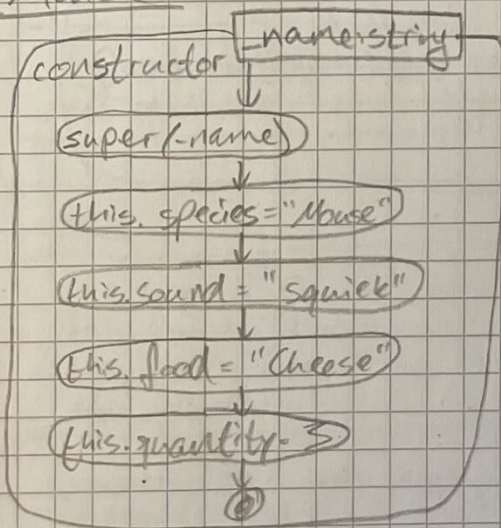 _name:string
constructor
super(_name)
this.species="Mouse"
this.sound="squick"
this.food="Cheese"
this.quantity=3